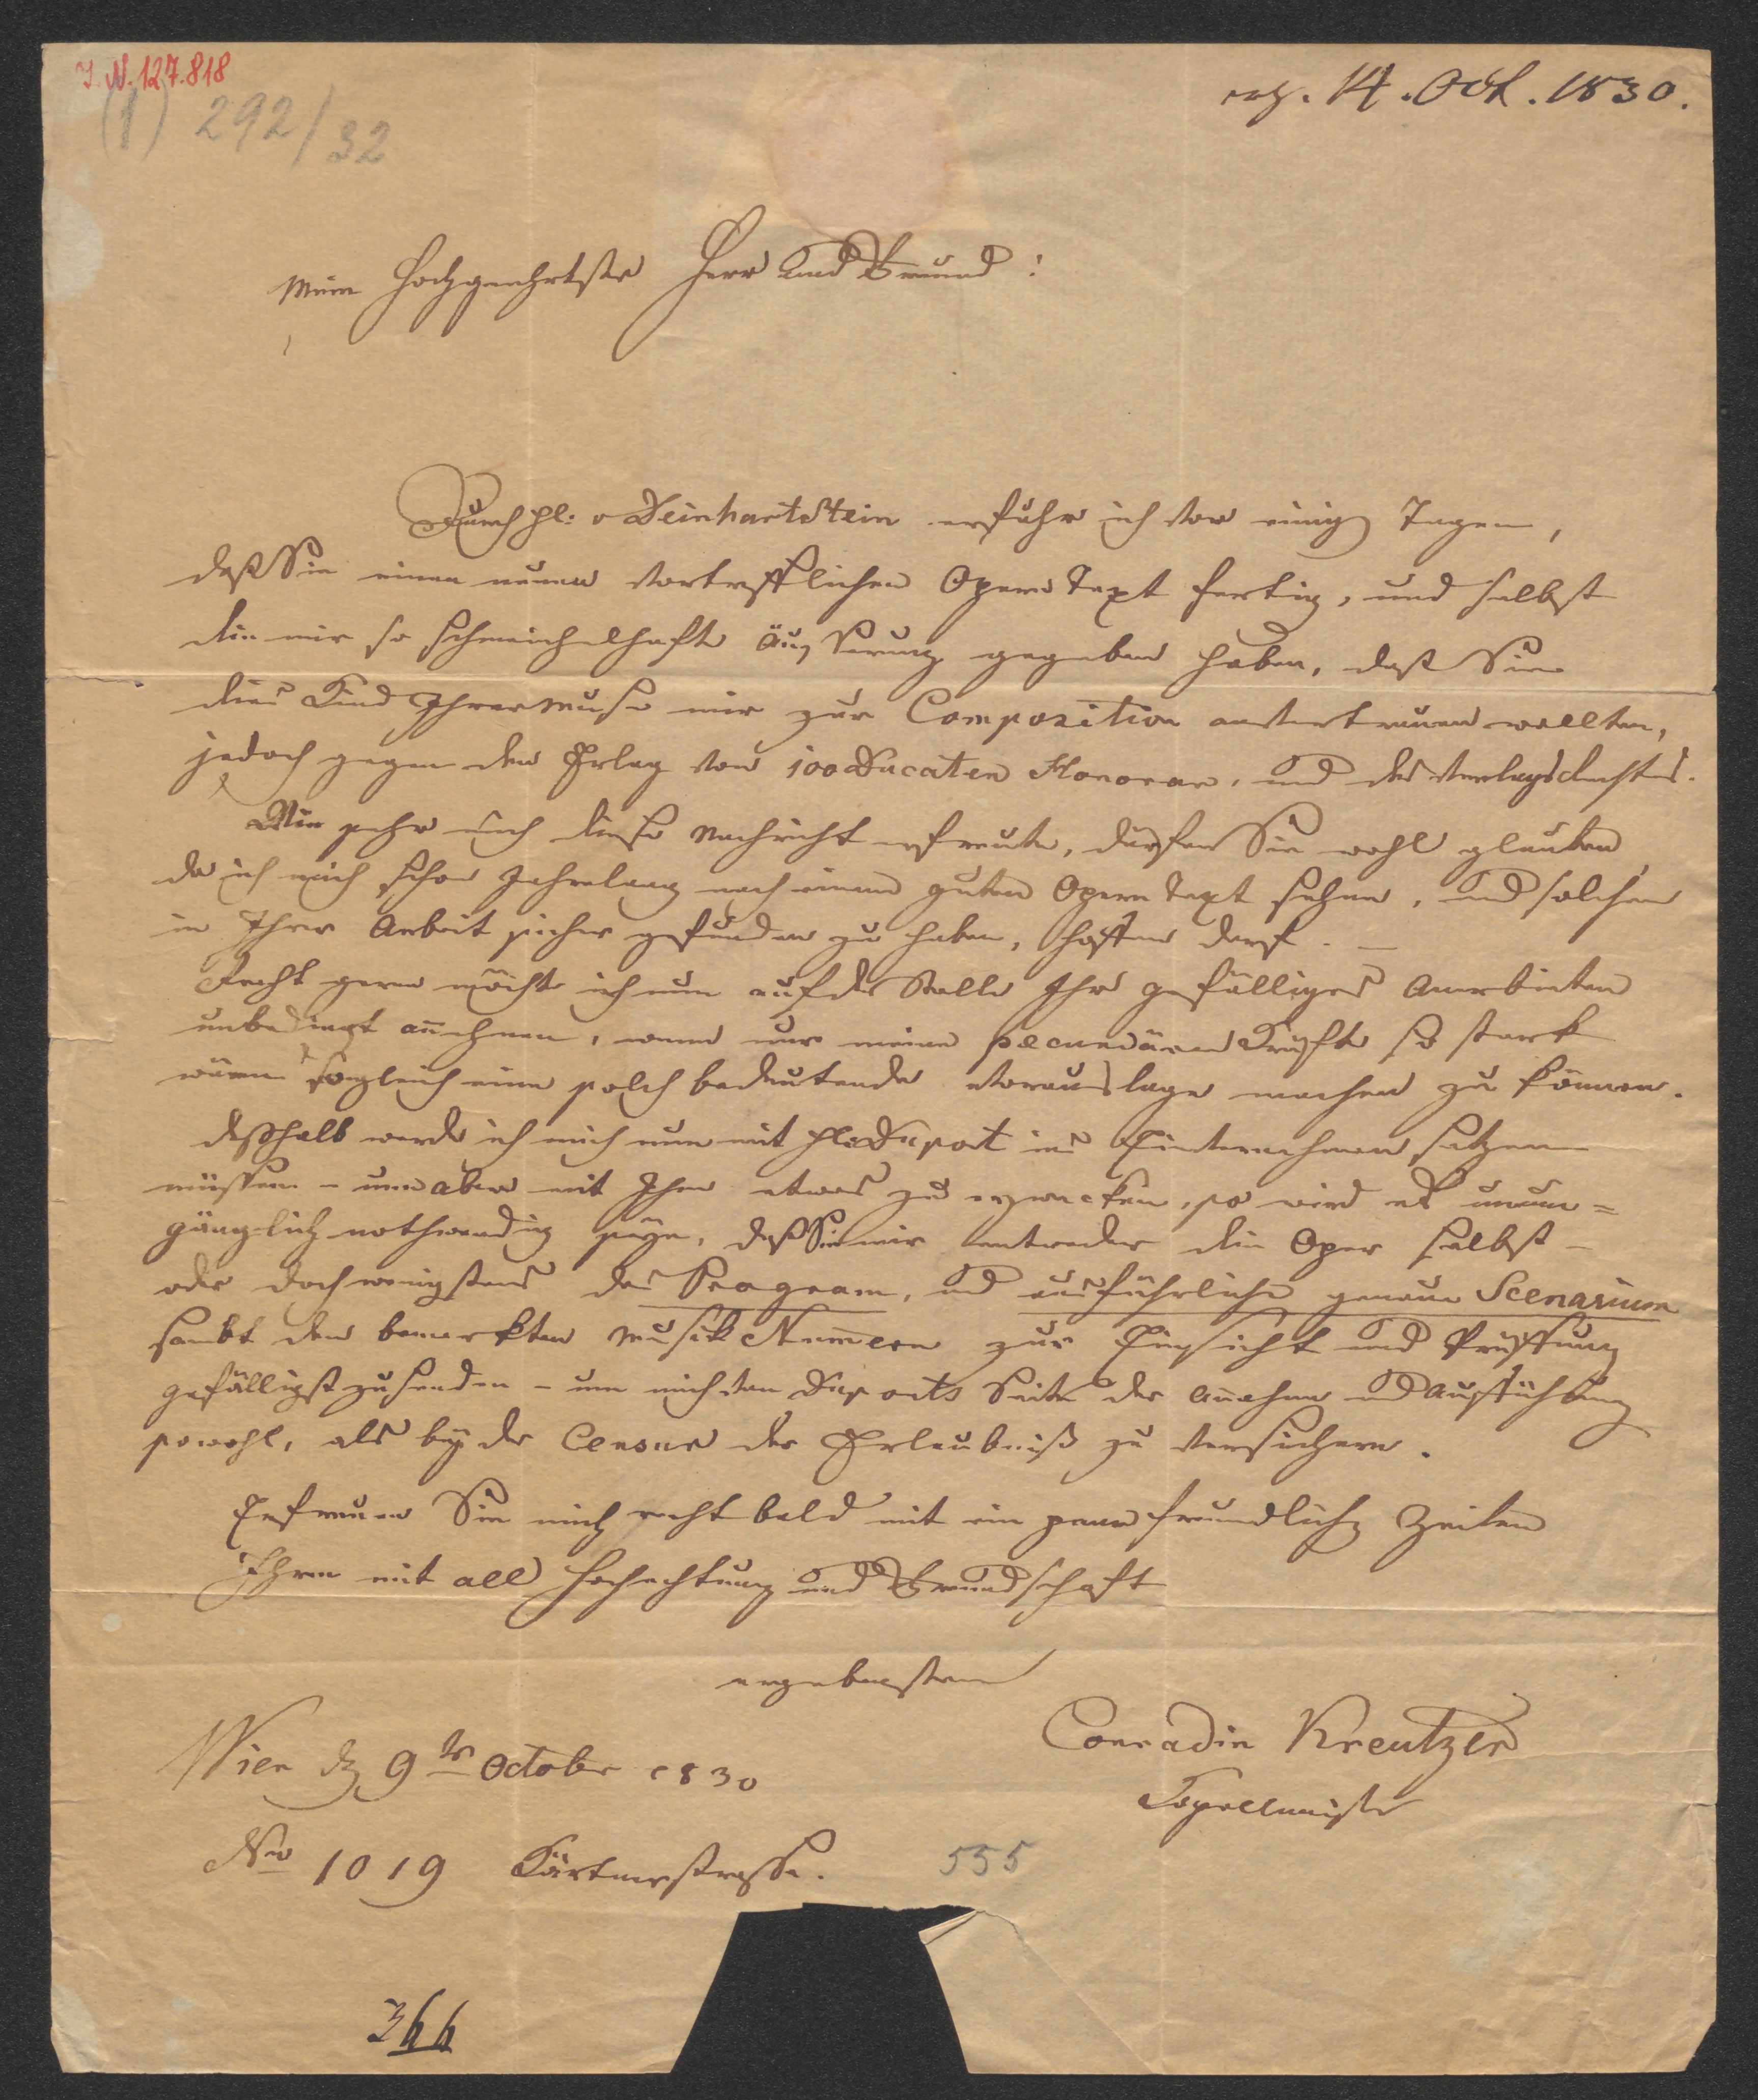 I. N. 127.818
(1) 292/32
erh. 14. Oct. 1830.
Mein Hochgeehrtester Herr und Freund!
Durch H: v Deinhartstein erfuhr ich vor einig Tagen,
daß Sie einen neuen vortrefflichen Opern Text fertig, und selbst
die mir so schmeichelhafte Äußerung gegeben haben, daß Sie
dies Kind Ihrer Muse mir zur Composition anvertrauen wollten,
jedoch gegen den Erlag von 100 Ducaten Honorar, und des Verlagsrechtes.
Wie sehr mich diese Nachricht erfreute, dürfen Sie wohl glauben,
da ich mich schon Jahrelang nach einem guten Opern Text sehne, und solchen
in Ihrer Arbeit sicher gefunden zu haben, hoffen darf. —
Recht gerne möchte ich nun auf der Stelle Ihr gefälliges Anerbieten
unbedingt annehmen, wenn nur meine pecuniären Kräfte so stark
wären sogleich eine solch bedeutende Vorauslage machen zu können.
deßhalb werde ich mich nun mit H: Duport ins Einvernehmen setzen
müssen – um aber mit Ihm etwas zu erzwecken, so wird es unum=
gänglich nothwendig seyn, daß Sie mir entweder die Oper selbst –
oder doch wenigstens das Program, und ausführliche genaue Scenarium
sambt den bemerkten Musik Numern zur Einsicht und Prüffung
gefälligst zusenden – um mich von Duports Seite der Anahme und Aufführung
sowohl, als bey der Censur der Erlaubniß zu versichern.
Erfreuen Sie mich recht bald mit ein paar freundlich Zeilen
Ihren mit all Hochachtung und Freundschaft
ergebensten
Conradin Kreutzer
Kapellmeister
Wien d 9ten October 1830
No 1019 Kärtnerstrasse.
555
366